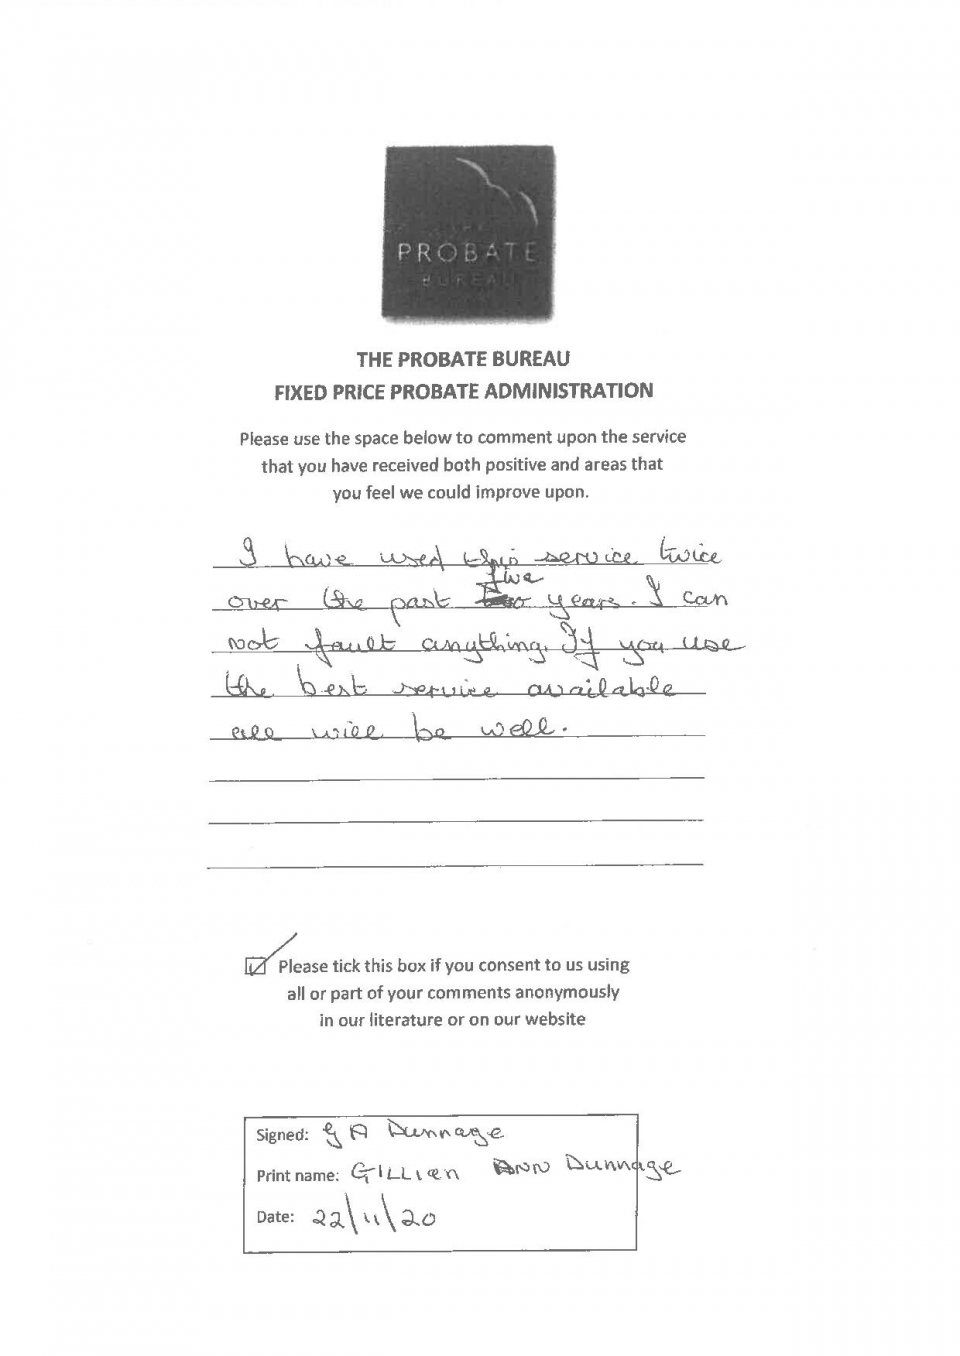 PROBATE
BUREAU
THE PROBATE BUREAU
FIXED PRICE PROBATE ADMINISTRATION
Please use the space below to comment upon the service
that you have received both positive and areas that
you feel we could improve upon.
I have used this service twice
five
over the past years. I can
not fault anything. If you use
the best service available
all will be well.
Please tick this box if you consent to us using
all or part of your comments anonymously
in our literature or on our website
Signed: G A Dunnage
Print name: GILLIAN ANN Dunnage
Date: 22/11/20